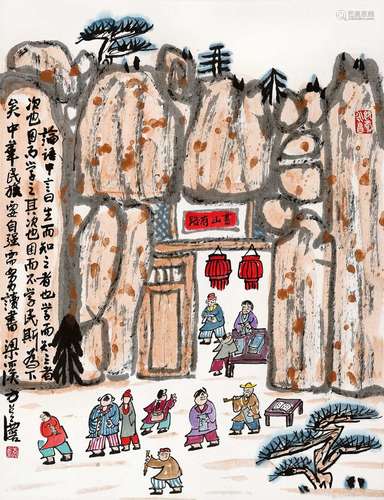 書山有路
論語中言曰生而知之者也学而知之者
次也困而学之其次也困而不学民斯為下
矣中華民族要自强需多讀書 梁溪方召麐